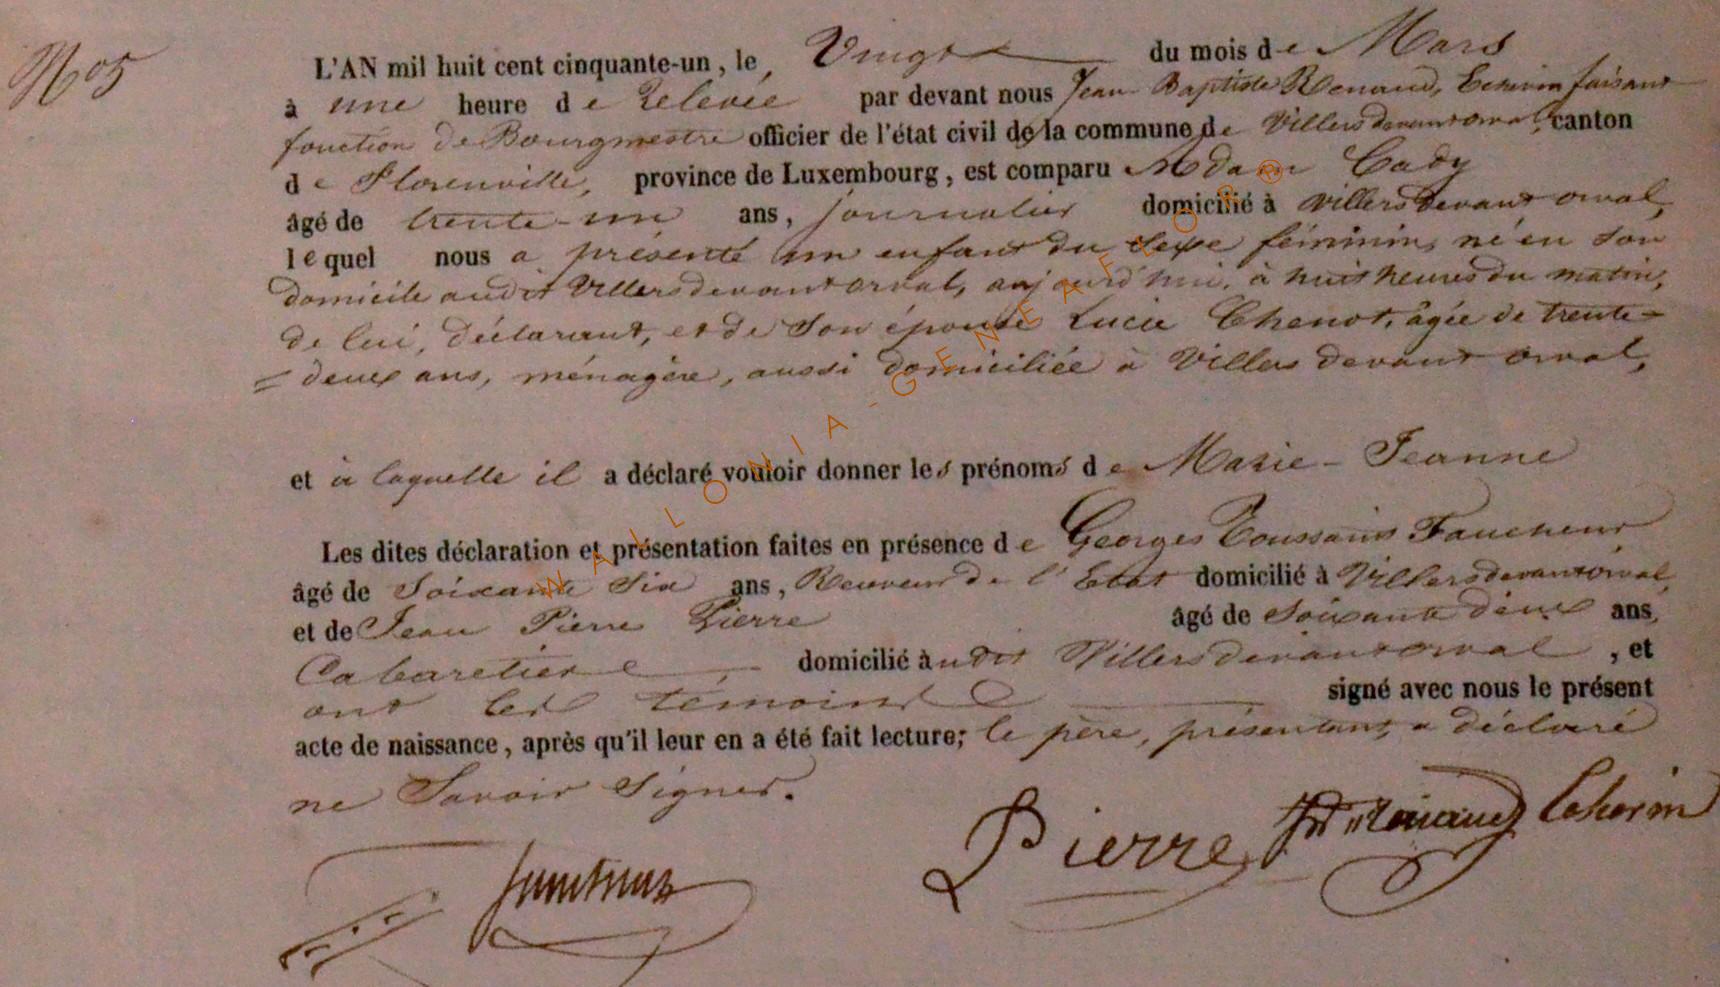 N° 5
L'AN mil huit cent cinquante-un, le Vingt du mois de Mars
à une heure de Relevée par devant nous Jean Baptiste Renaud, Echevin faisant
fonction de Bourgmestre officier de l'état civil de la commune de Villersdevantorval, canton
de Florenville, province de Luxembourg, est comparu Adam Cady
âgé de trente-un ans, journalier domicilié à Villersdevant orval,
lequel nous a présenté un enfant du sexe féminin, né en son
domicile audit Villersdevantorval, aujourd'hui, à huit heures du matin,
de lui, déclarant, et de son épouse Lucie Chenot, âgée de trente=
= deux ans, ménagère, aussi domiciliée à Villers devant orval,
et à laquelle il a déclaré vouloir donner les prénoms de Marie-Jeanne
Les dites déclaration et présentation faites en présence de Georges Toussaint Faucheur
âgé de Soixante Six ans, de l'Etat domicilié à Villersdevantorval
et de Jean Pierre Pierre âgé de soixante deux ans,
Cabaretier, domicilié audit Villersdevantorval, et
ont les temoins signé avec nous le présent
acte de naissance, après qu'il leur en a été fait lecture; le père, présentant, a déclaré
ne Savoir Signer.
Pierre Renaud Echevin
WALLONIA-GENEAFLOR®